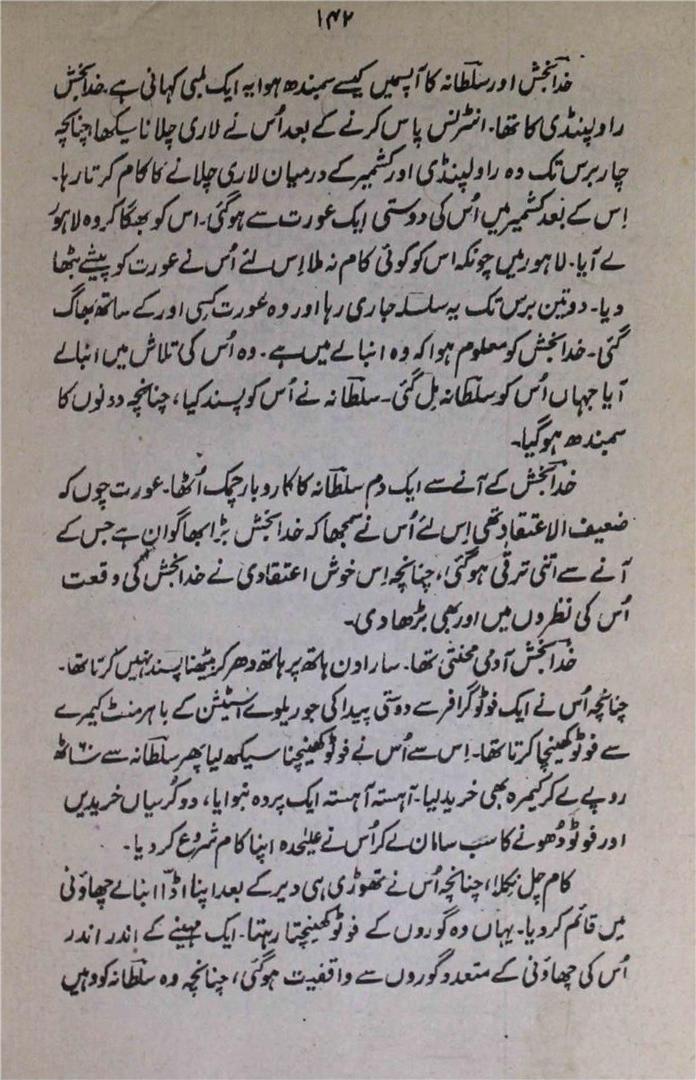 ۱۴۲
خدابخش اور سلطانہ کا آپسمیں کیسے سمبندھ ہوا یہ ایک لمبی کہانی ہے۔ خدابخش
راولپنڈی کا تھا۔ انٹرنس پاس کرنے کے بعد اُس نے لاری چلانا سیکھا، چنانچہ
چار برس تک وہ راولپنڈی اور کشمیر کے درمیان لاری چلانے کا کام کرتا رہا۔
اِس کے بعد کشمیر میں اُس کی دوستی ایک عورت سے ہوگئی۔ اس کو بھگا کر وہ لاہور
لے آیا۔ لاہور میں چونکہ اس کو کوئی کام نہ ملا اِس لئے اُس نے عورت کو پیشے بٹھا
دیا۔ دو تین برس تک یہ سلسلہ جاری رہا اور وہ عورت کسی اور کے ساتھ بھاگ
گئی۔ خدابخش کو معلوم ہوا کہ وہ انبالے میں ہے۔ وہ اُس کی تلاش میں انبالے
آیا جہاں اُس کو سلطانہ مِل گئی۔ سلطانہ نے اُس کو پسند کیا، چنانچہ دونوں کا
سمبندھ ہوگیا۔
خدابخش کے آنے سے ایک دم سلطانہ کا کاروبار چمک اُٹھا۔ عورت چوں کہ
ضعیف الاعتقاد تھی اِس لئے اُس نے سمجھا کہ خدابخش بڑا بھاگوان ہے جس کے
آنے سے اتنی ترقی ہوگئی، چنانچہ اِس خوش اعتقادی نے خدابخش کی وقعت
اُس کی نظروں میں اور بھی بڑھا دی۔
خدابخش آدمی محنتی تھا۔ سارا دن ہاتھ پر ہاتھ دھر کر بیٹھنا پسند نہیں کرتا تھا۔
چنانچہ اُس نے ایک فوٹو گرافر سے دوستی پیدا کی جو ریلوے اسٹیشن کے باہر منٹ کیمرے
سے فوٹو کھینچا کرتا تھا۔ اِس سے اُس نے فوٹو کھینچنا سیکھ لیا پھر سلطانہ سے ساٹھ ۶۰
روپے لے کر کیمرہ بھی خرید لیا۔ آہستہ آہستہ ایک پردہ بنوایا، دو کرسیاں خریدیں
اور فوٹو دھونے کا سب سامان لے کر اُس نے علیٰحدہ اپنا کام شروع کر دیا۔
کام چل نِکلا، چنانچہ اُس نے تھوڑی ہی دیر کے بعد اپنا اڈّا انبالے چھاؤنی
میں قائم کر دیا۔ یہاں وہ گوروں کے فوٹو کھینچتا رہتا۔ ایک مہینے کے اندر اندر
اُس کی چھاؤنی کے متعدد گوروں سے واقفیت ہوگئی، چنانچہ وہ سلطانہ کو وہیں